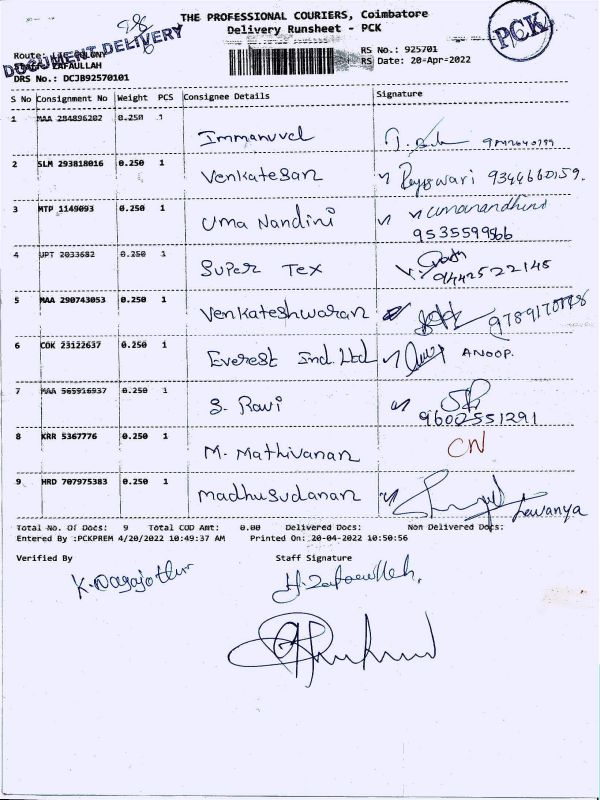 THE PROFESSIONAL COURIERS, Coimbatore
Delivery Runsheet - PCK
PCK
DOCUMENT DELIVERY
Route:
RS No.: 925701
ZAFAULLAH
RS Date: 20-Apr-2022
DRS No.: DCJB92570101
S No Consignment No Weight PCS Consignee Details Signature
1 MAA 284896202 0.250 1 Immanuvel
2 SLM 293818016 0.250 1 Venkatesan 9344660159.
3 MTP 1149093 0.250 1 Uma Nandini umanandhini
9535599566
4 UPT 2033682 0.250 1 Super Tex
9442522145
5 MAA 290743053 0.250 1 Venkateshwaran
6 COK 23122637 0.250 1 Everest Ind. Ltd ANOOP.
7 MAA 565916937 0.250 1 S. Ravi
9602551291
8 KRR 5367776 0.250 1 M. Mathivanan CN
9 HRD 707975383 0.250 1 Madhusudanan Lewanya
Total No. Of Docs: 9 Total COD Amt: 0.00 Delivered Docs: Non Delivered Docs:
Entered By :PCKPREM 4/20/2022 10:49:37 AM Printed On: 20-04-2022 10:50:56
Verified By Staff Signature